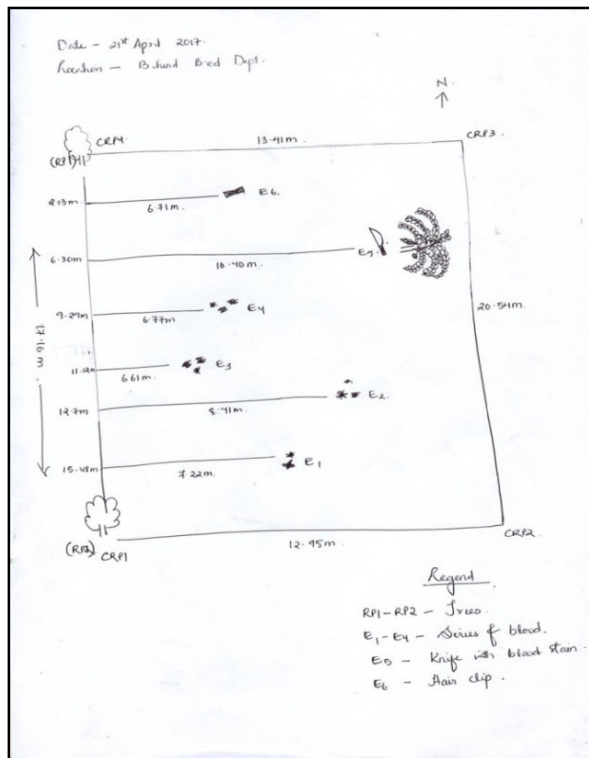 Date - 21st April 2017.
Location - Behind B.ed Dept.
N.
CRP4
13.41m.
CRP3
(RP1)
2.13m.
6.71m.
E6.
6.30m
10.40m.
E5.
9.29m
6.77m
E4
20.54m
17.16m.
11.12m
6.61m
E3
12.7m
8.41m
E2
15.48m
7.22m
E1
(RP2) CRP1
12.95m.
CRP2
Legend
RP1-RP2 - Trees.
E1-E4 - Series of blood.
E5 - Knife with blood stain.
E6 - Hair clip.